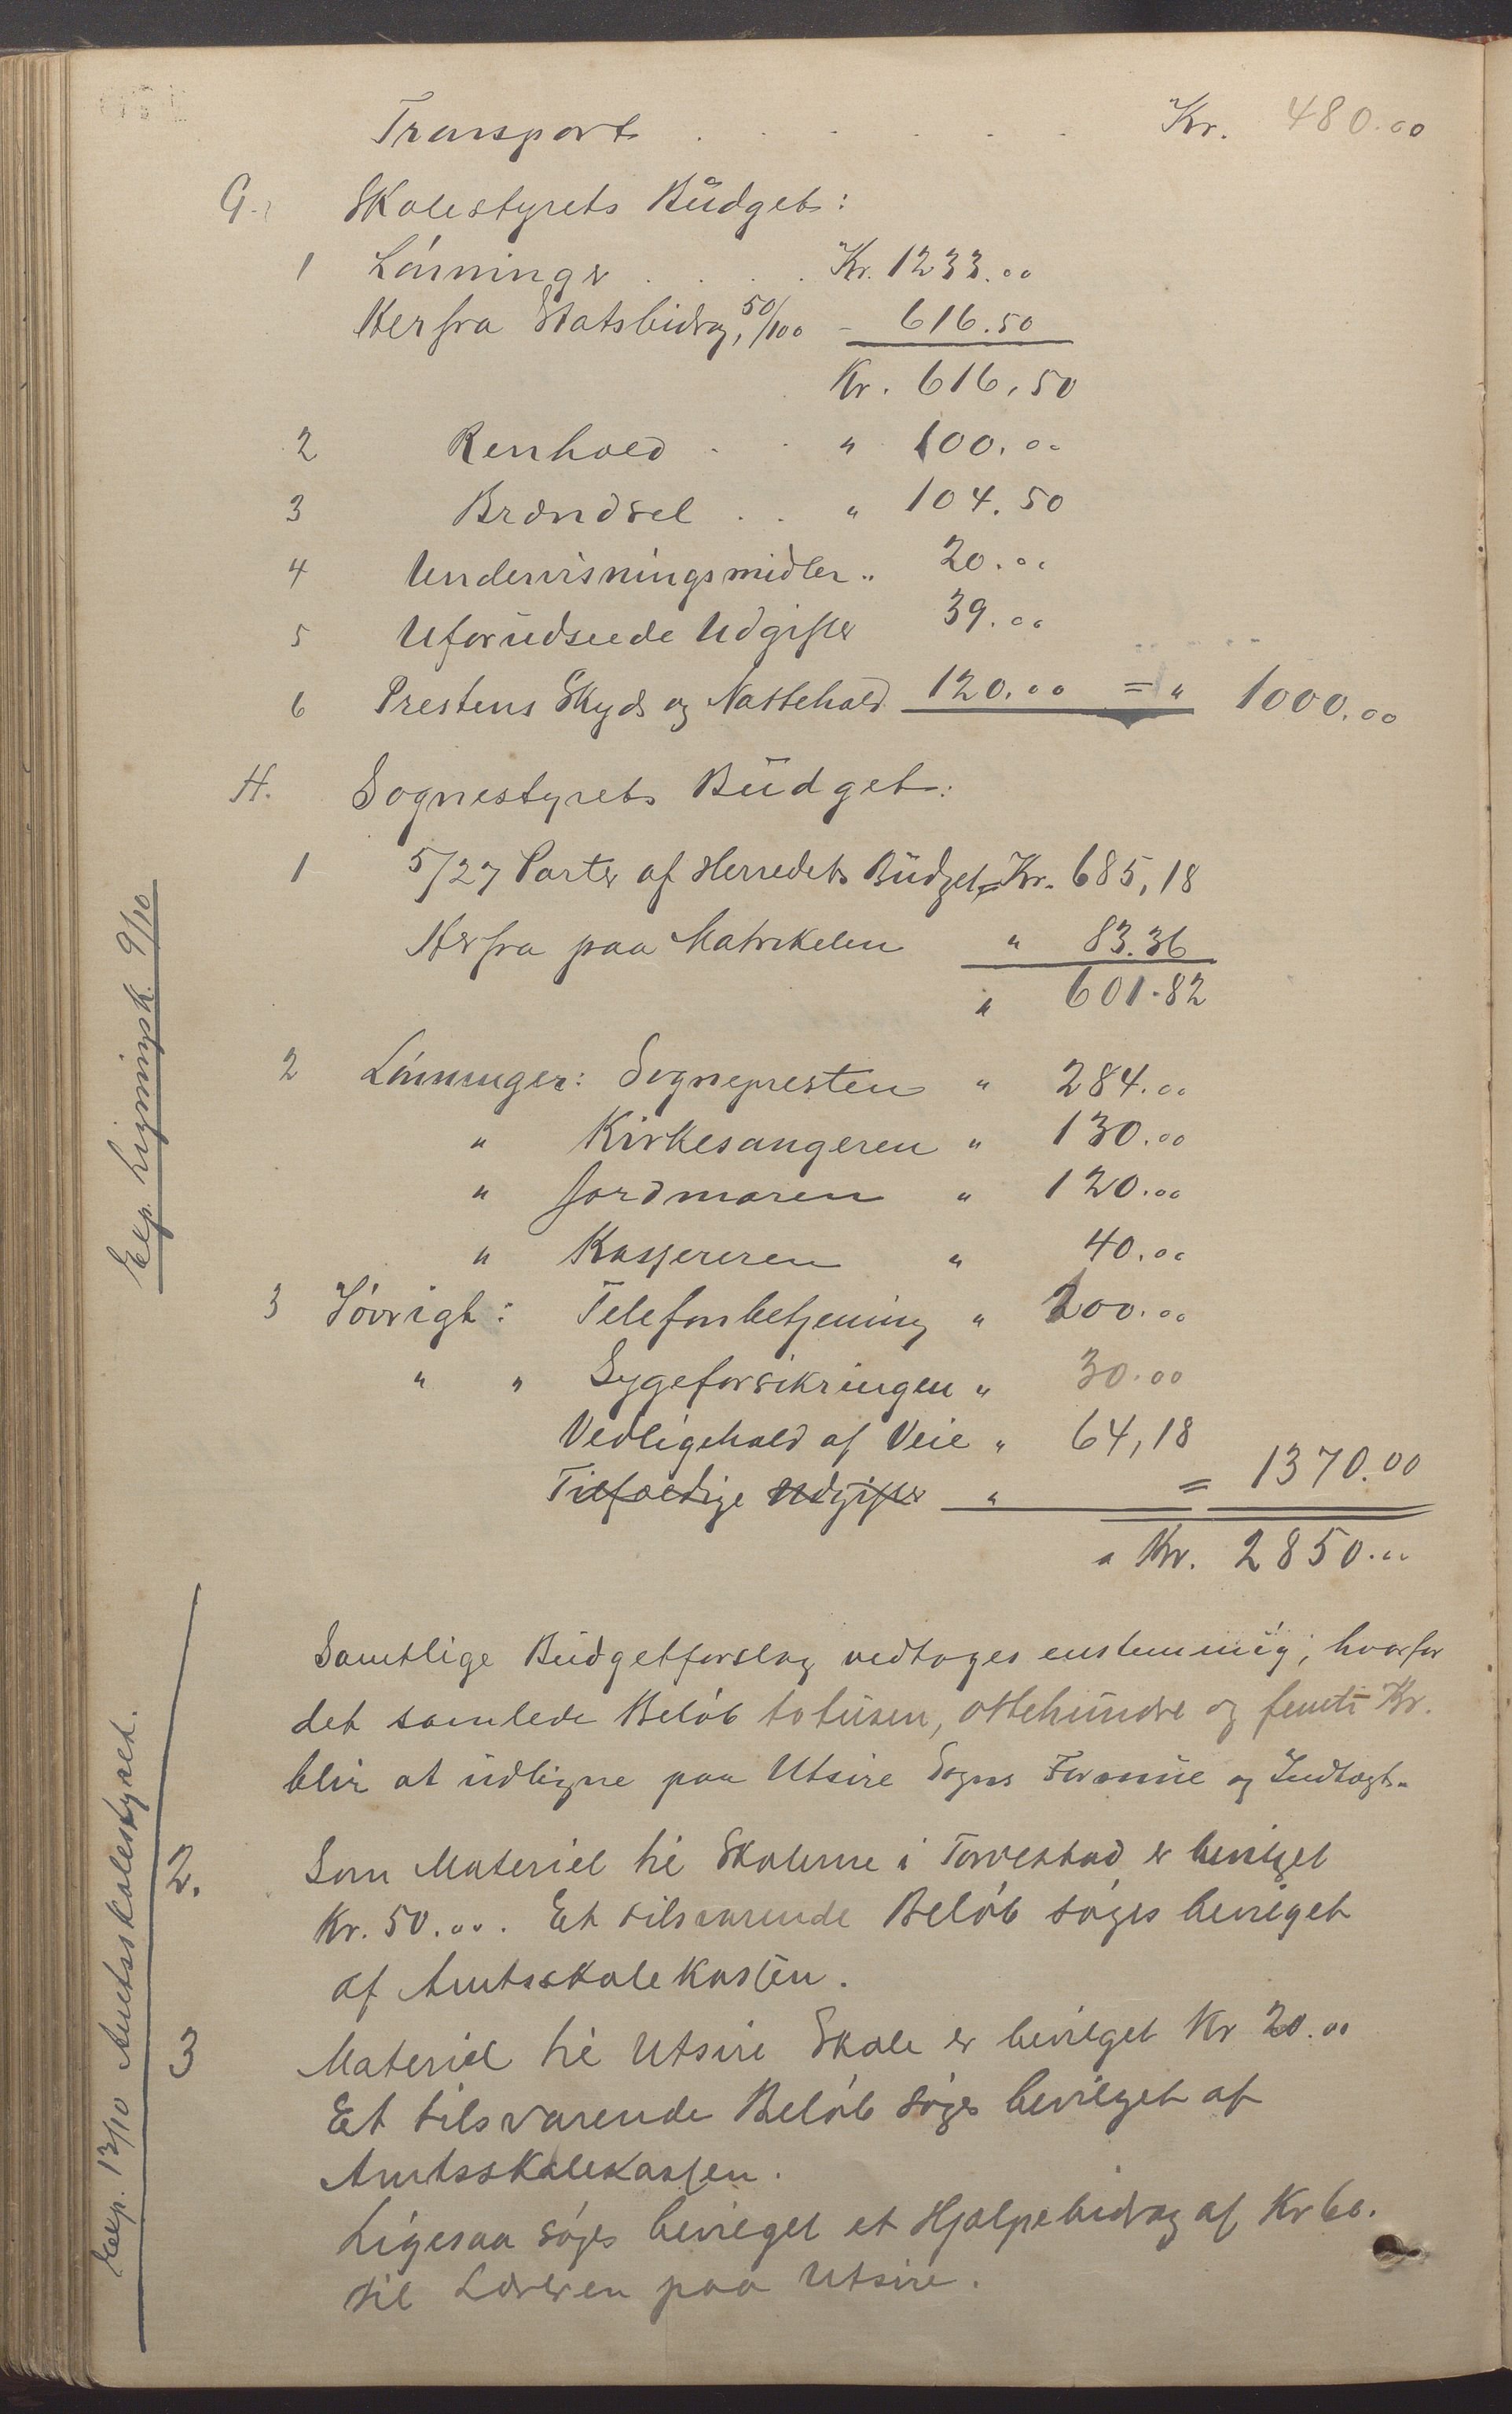 Transport . . . . . . Kr. 480.00
G. Skolestyrets Budget:
1 Lönninger . . . . Kr. 1233.00
Herfra Statsbidrag, 50/100 - 616.50
Kr. 616,50
2 Renhold . . " 100.00
3 Brændsel . . " 104.50
4 Undervisningsmidler " 20.00
5 Uforudseede Udgifter 39.00
6 Prestens Skyds og Nattehold 120.00 = " 1000.00
H. Sognestyrets Budget:
1 5/27 Parter af Herredets Budget = Kr. 685,18
Herfra paa Matrikelen " 83.36
" 601.82
2 Lönninger: Sognepresten " 284.00
" Kirkesangeren " 130.00
" Jordmoren " 120.00
" Kasjereren " 40.00
3 Iövrigt: Telefonbetjening " 200.00
" " Sygeforsikringen " 30.00
Vedligehold af Veie " 64,18
Tilfældige Udgifter " = 1370.00
" Kr. 2850.00
Samtlige Budgetforslag vedtoges enstemmig; hvorfor
det samlede Belöb totusen, ottehundre og femti Kr.
blir at udligne paa Utsire Sogns Formue og Indtægt.
2. Som Materiel til Skolerne i Torvestad er bevilget
Kr. 50.00. Et tilsvarende Belöb söges bevilget
af Amtsskolekassen.
3 Materiel til Utsire Skole er bevilget Kr 20.00
Et tilsvarende Belöb söges bevilget af
Amtsskolekassen.
Ligesaa söges bevilget et Hjælpebidrag af Kr 60.
til Læreren paa Utsire.
Exp. Ligningsk. 9/10
Exp. 12/10 Amtsskolestyret.